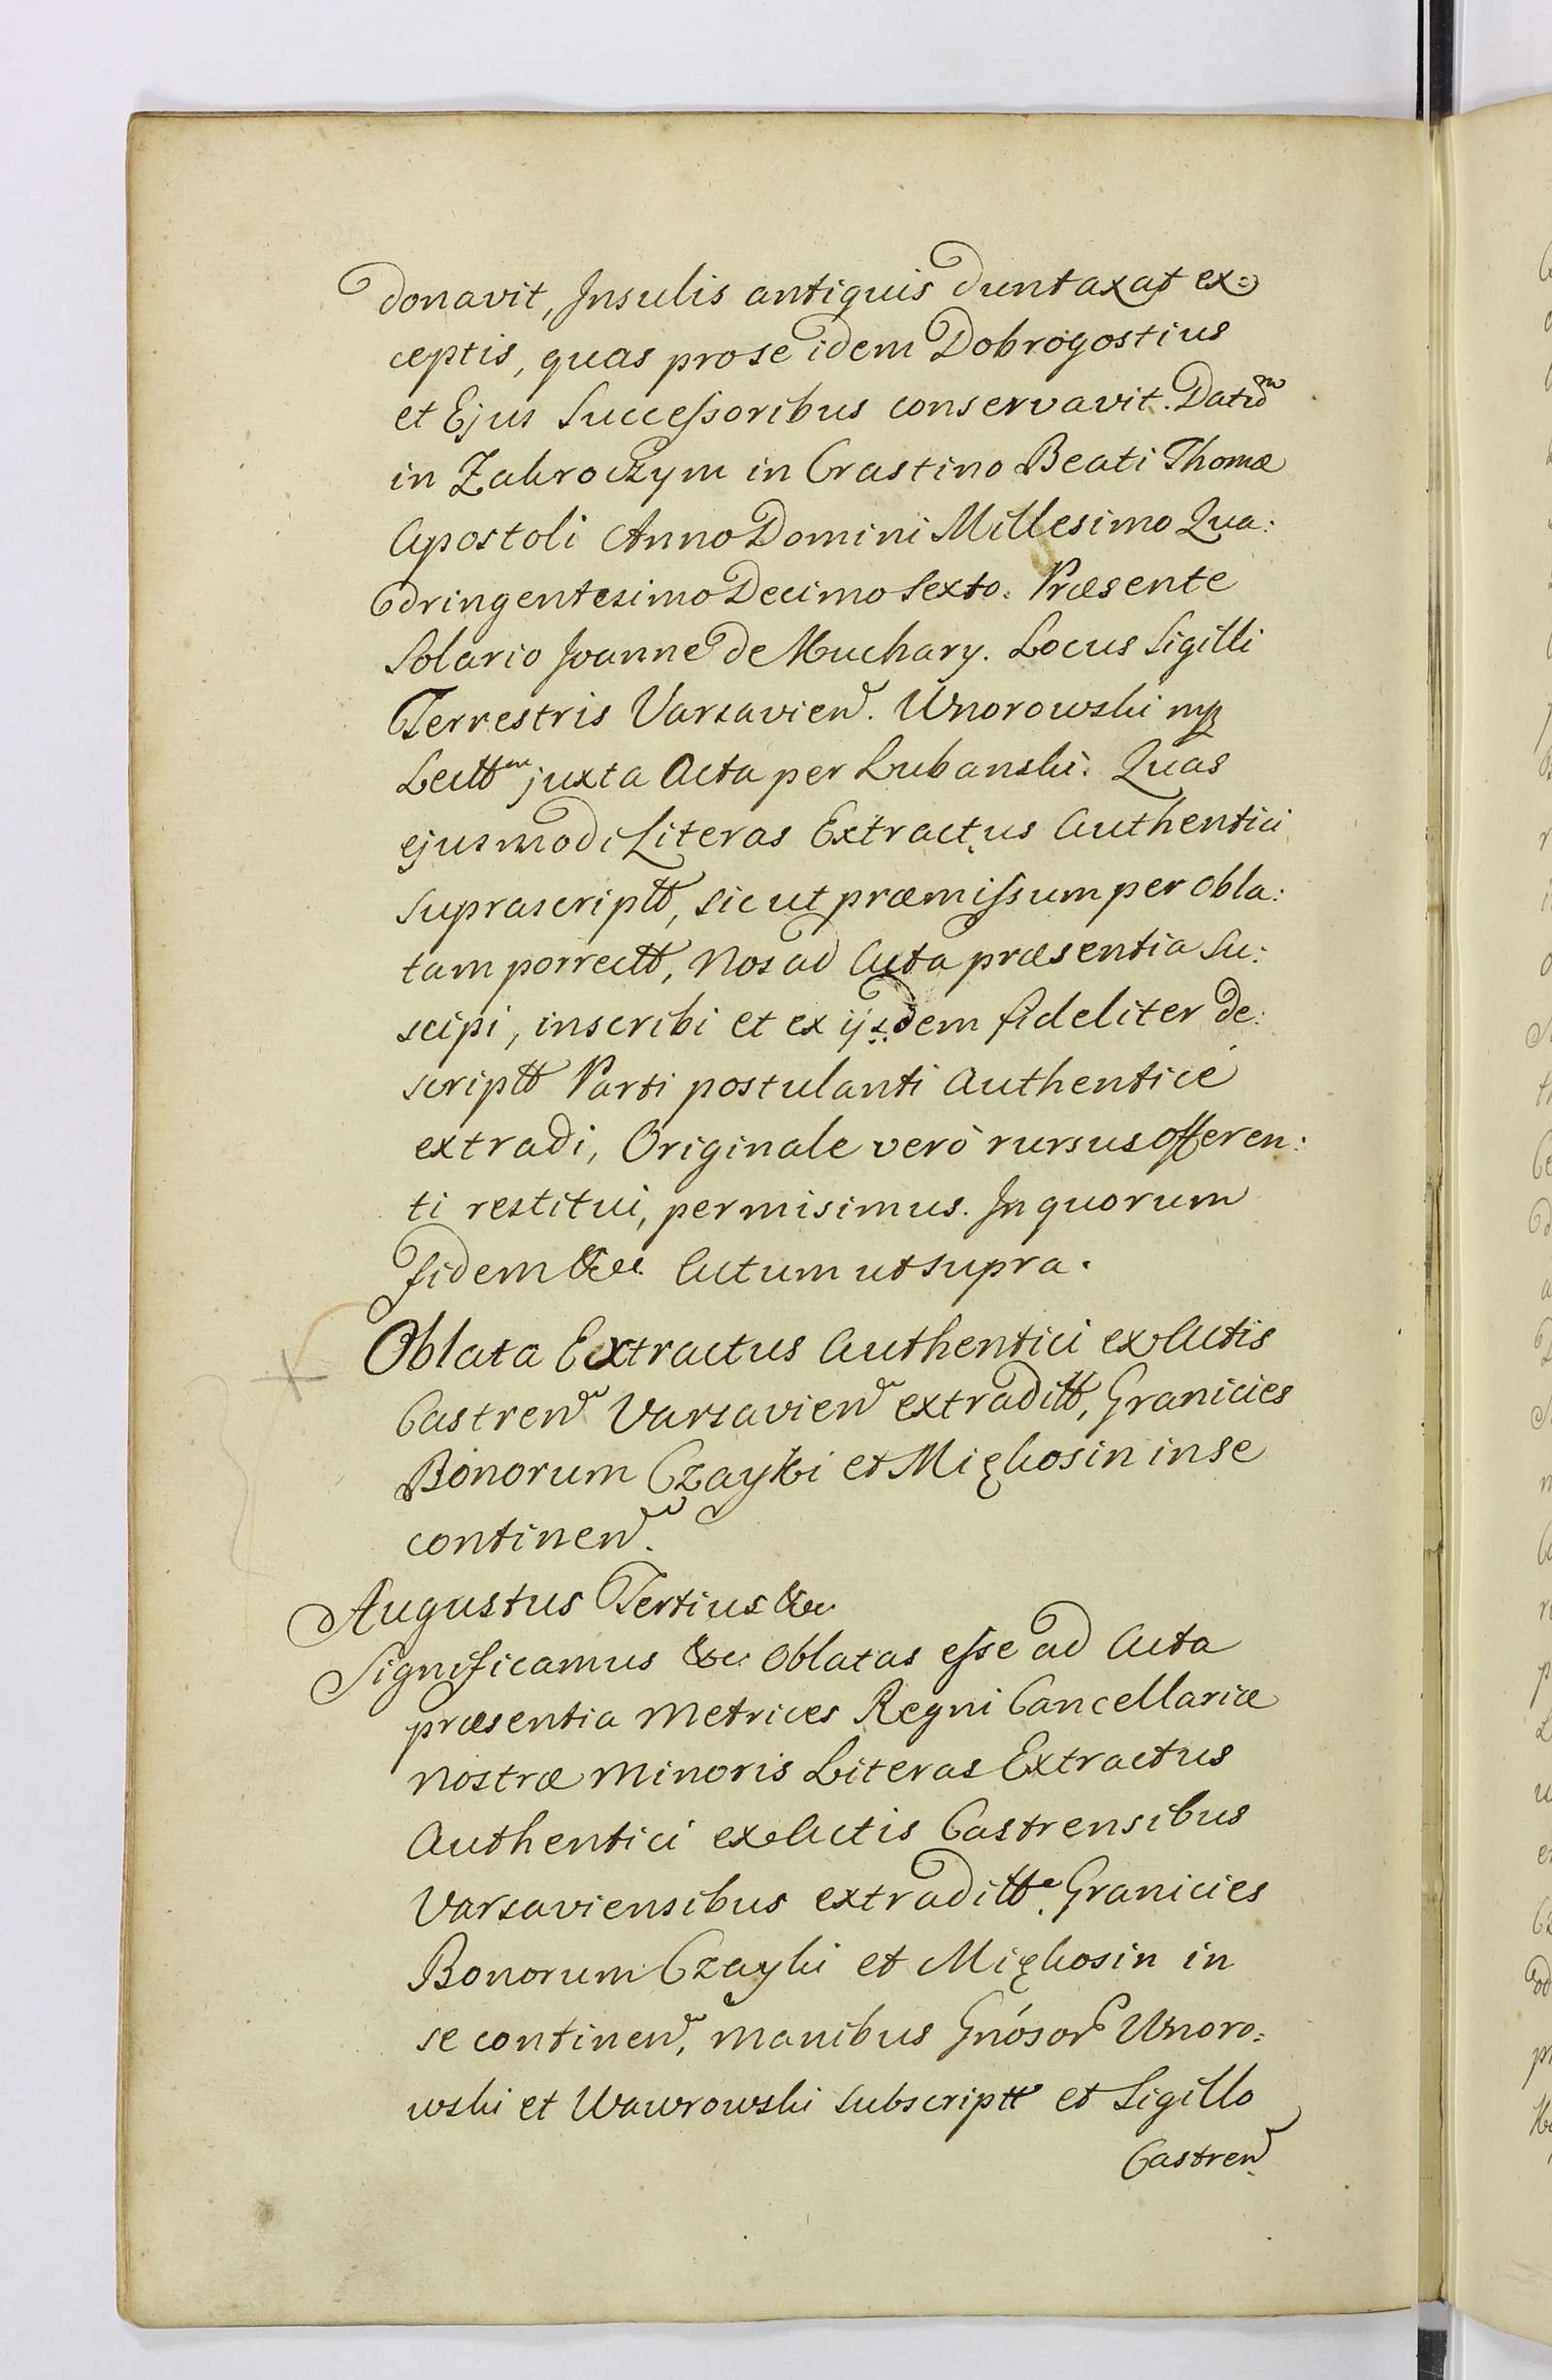 donavit, Insulis antiquis duntaxat ex=
ceptis, quas pro se idem Dobrogostius
et Ejus Successoribus conservavit. Datum
in Zakroczym in Crastino Beati Thomæ
Apostoli Anno Domini Millesimo Qua:
dringentesimo Decimo Sexto. Præsente
Solario Joanne de Muchary. Locus Sigilli
Terrestris Varsavien. Unorowski mp
Lectt juxta Acta per Lubanski. Quas
ejusmodi Literas Extractus Authentici
suprascriptt, sic ut præmissum per obla:
tam porrectt, Nos ad Acta præsentia su:
scipi, inscribi et ex ijsdem fideliter de:
scriptt Parti postulanti Authenticè
extradi, Originale verò rursus offeren:
ti restitui, permisimus. In quorum
fidem &cc. Actum ut supra.
Oblata Extractus Authentici ex Actis
Castren Varsavien extraditt, Granicies
Bonorum Czayki et Miękosin in se
continen.
Augustus Tertius &c
Significamus &c. Oblatas esse ad Acta
præsentia Metrices Regni Cancellariæ
Nostræ Minoris Literas Extractus
Authentici ex Actis Castrensibus
Varsaviensibus extraditt. Granicies
Bonorum Czayki et Miękosin in
se continen, manibus Gnósor Unoro=
wski et Wawrowski subscriptt et Sigillo
Castren